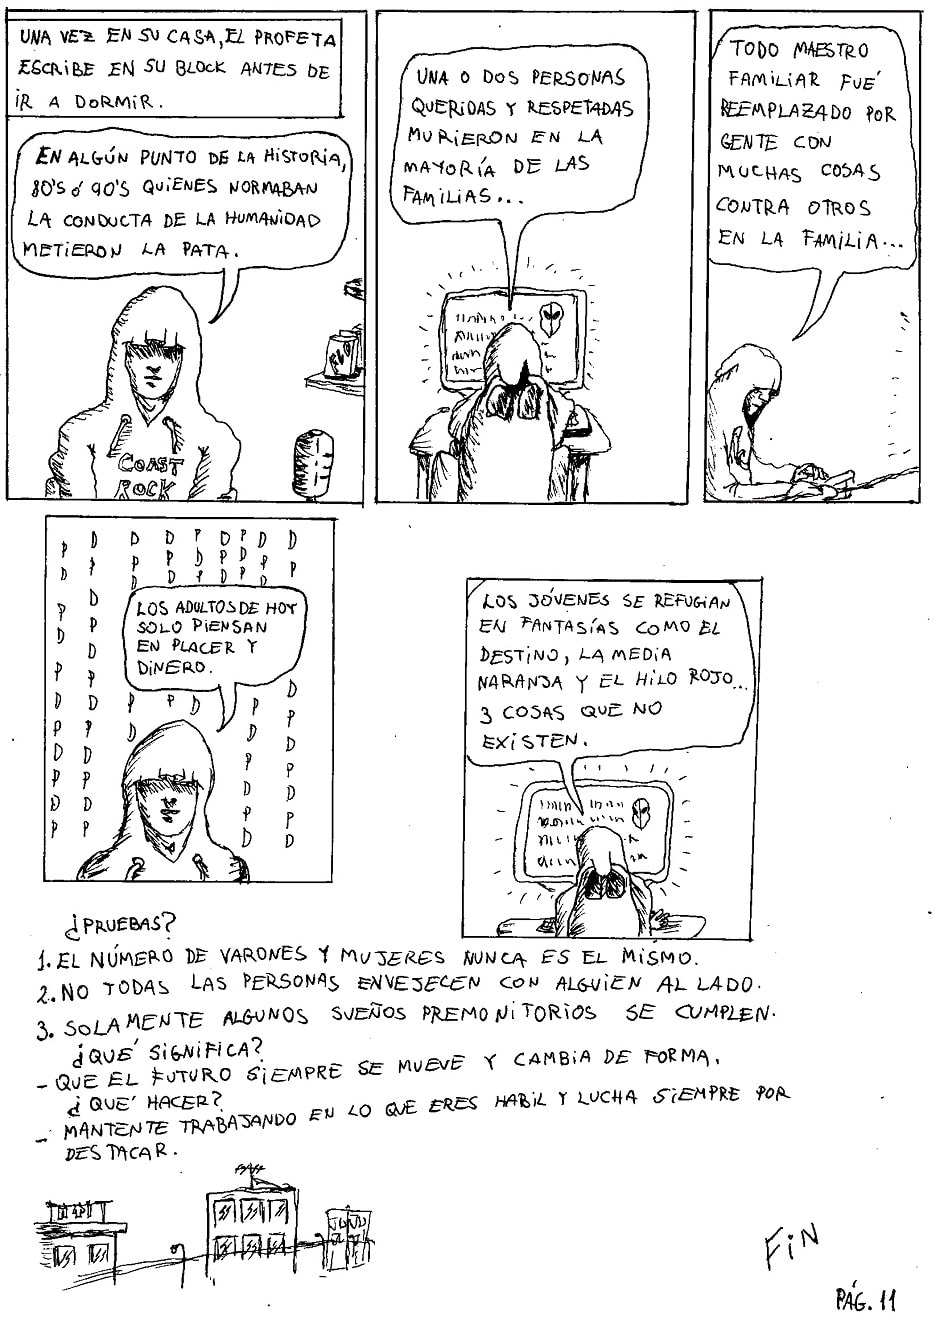 UNA VEZ EN SU CASA, EL PROFETA
ESCRIBE EN SU BLOCK ANTES DE
IR A DORMIR.
EN ALGÚN PUNTO DE LA HISTORIA,
80'S Ó 90'S QUIENES NORMABAN
LA CONDUCTA DE LA HUMANIDAD
METIERON LA PATA.
COAST
ROCK
UNA O DOS PERSONAS
QUERIDAS Y RESPETADAS
MURIERON EN LA
MAYORÍA DE LAS
FAMILIAS...
TODO MAESTRO
FAMILIAR FUÉ
REEMPLAZADO POR
GENTE CON
MUCHAS COSAS
CONTRA OTROS
EN LA FAMILIA...
LOS ADULTOS DE HOY
SOLO PIENSAN
EN PLACER Y
DINERO.
LOS JÓVENES SE REFUGIAN
EN FANTASÍAS COMO EL
DESTINO, LA MEDIA
NARANJA Y EL HILO ROJO...
3 COSAS QUE NO
EXISTEN.
¿PRUEBAS?
1. EL NÚMERO DE VARONES Y MUJERES NUNCA ES EL MISMO.
2. NO TODAS LAS PERSONAS ENVEJECEN CON ALGUIEN AL LADO.
3. SOLAMENTE ALGUNOS SUEÑOS PREMONITORIOS SE CUMPLEN.
¿QUÉ SIGNIFICA?
- QUE EL FUTURO SIEMPRE SE MUEVE Y CAMBIA DE FORMA.
¿QUÉ HACER?
- MANTENTE TRABAJANDO EN LO QUE ERES HABIL Y LUCHA SIEMPRE POR
DESTACAR.
FIN
PÁG. 11